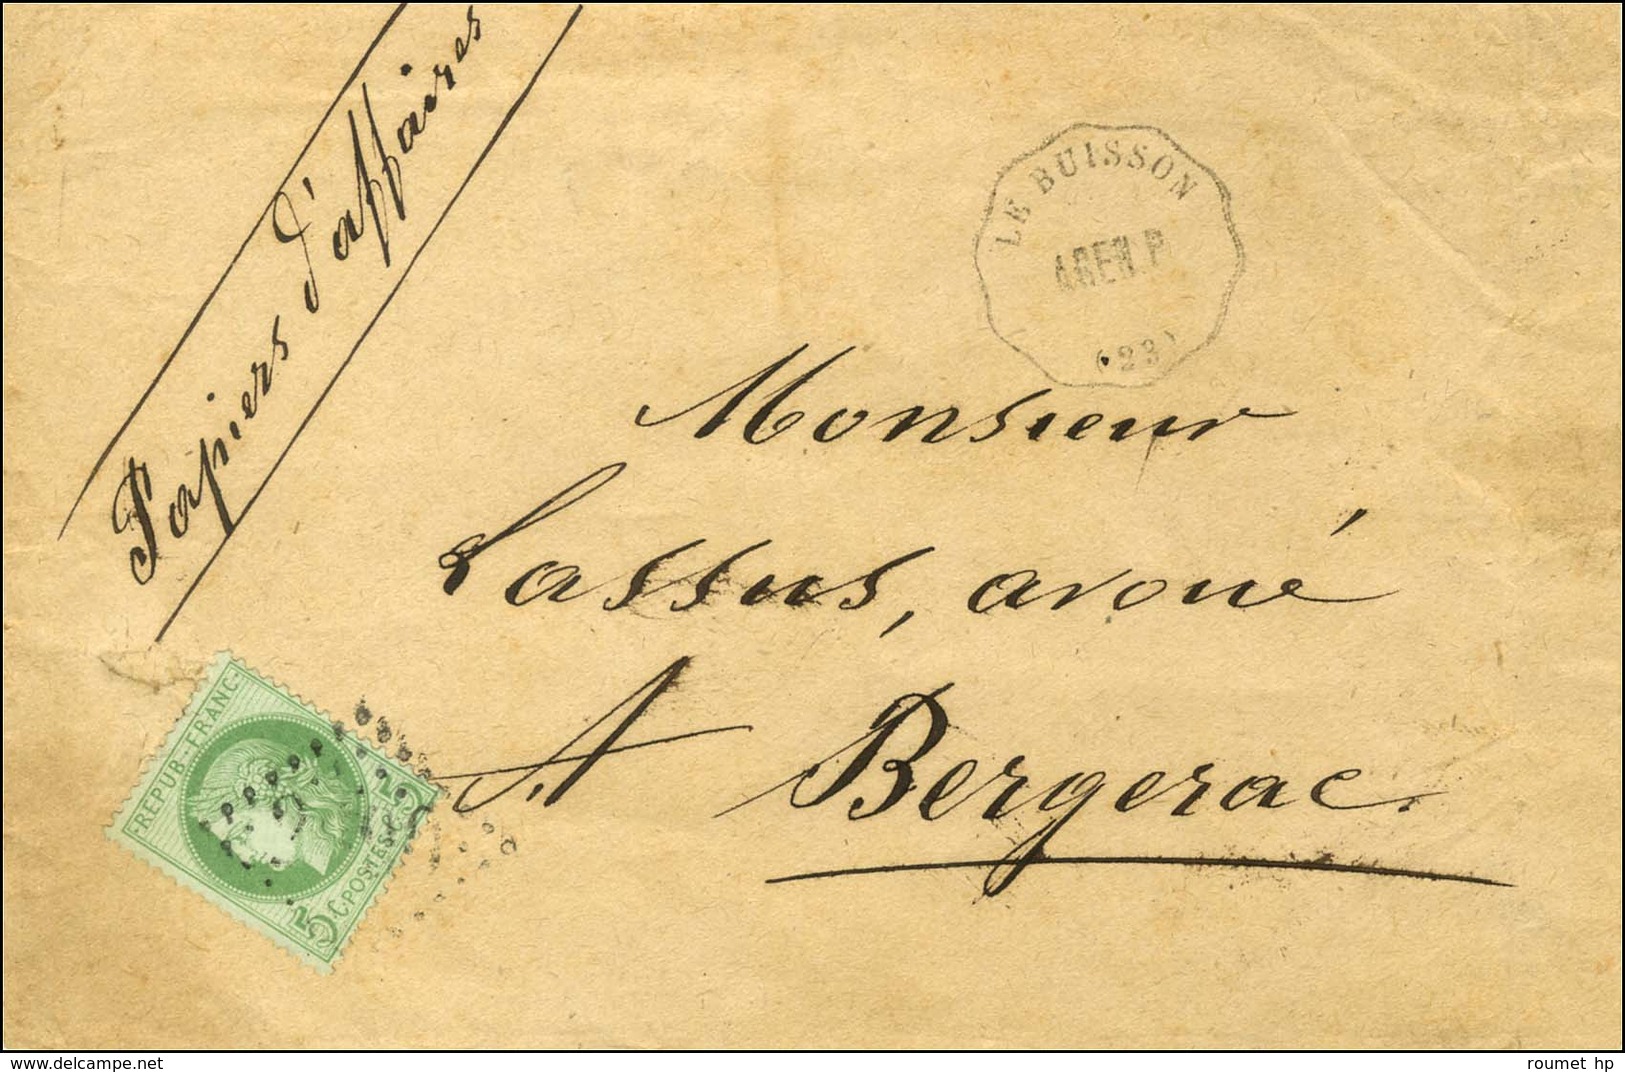 Papiers d'affaires
LE BUISSON
AGEN.P.
(23)
Monsieur
Lassus, avoué
A Bergerac.
REPUB·FRANC·
5 C.POSTES 5
delcampe.net
roumet hp